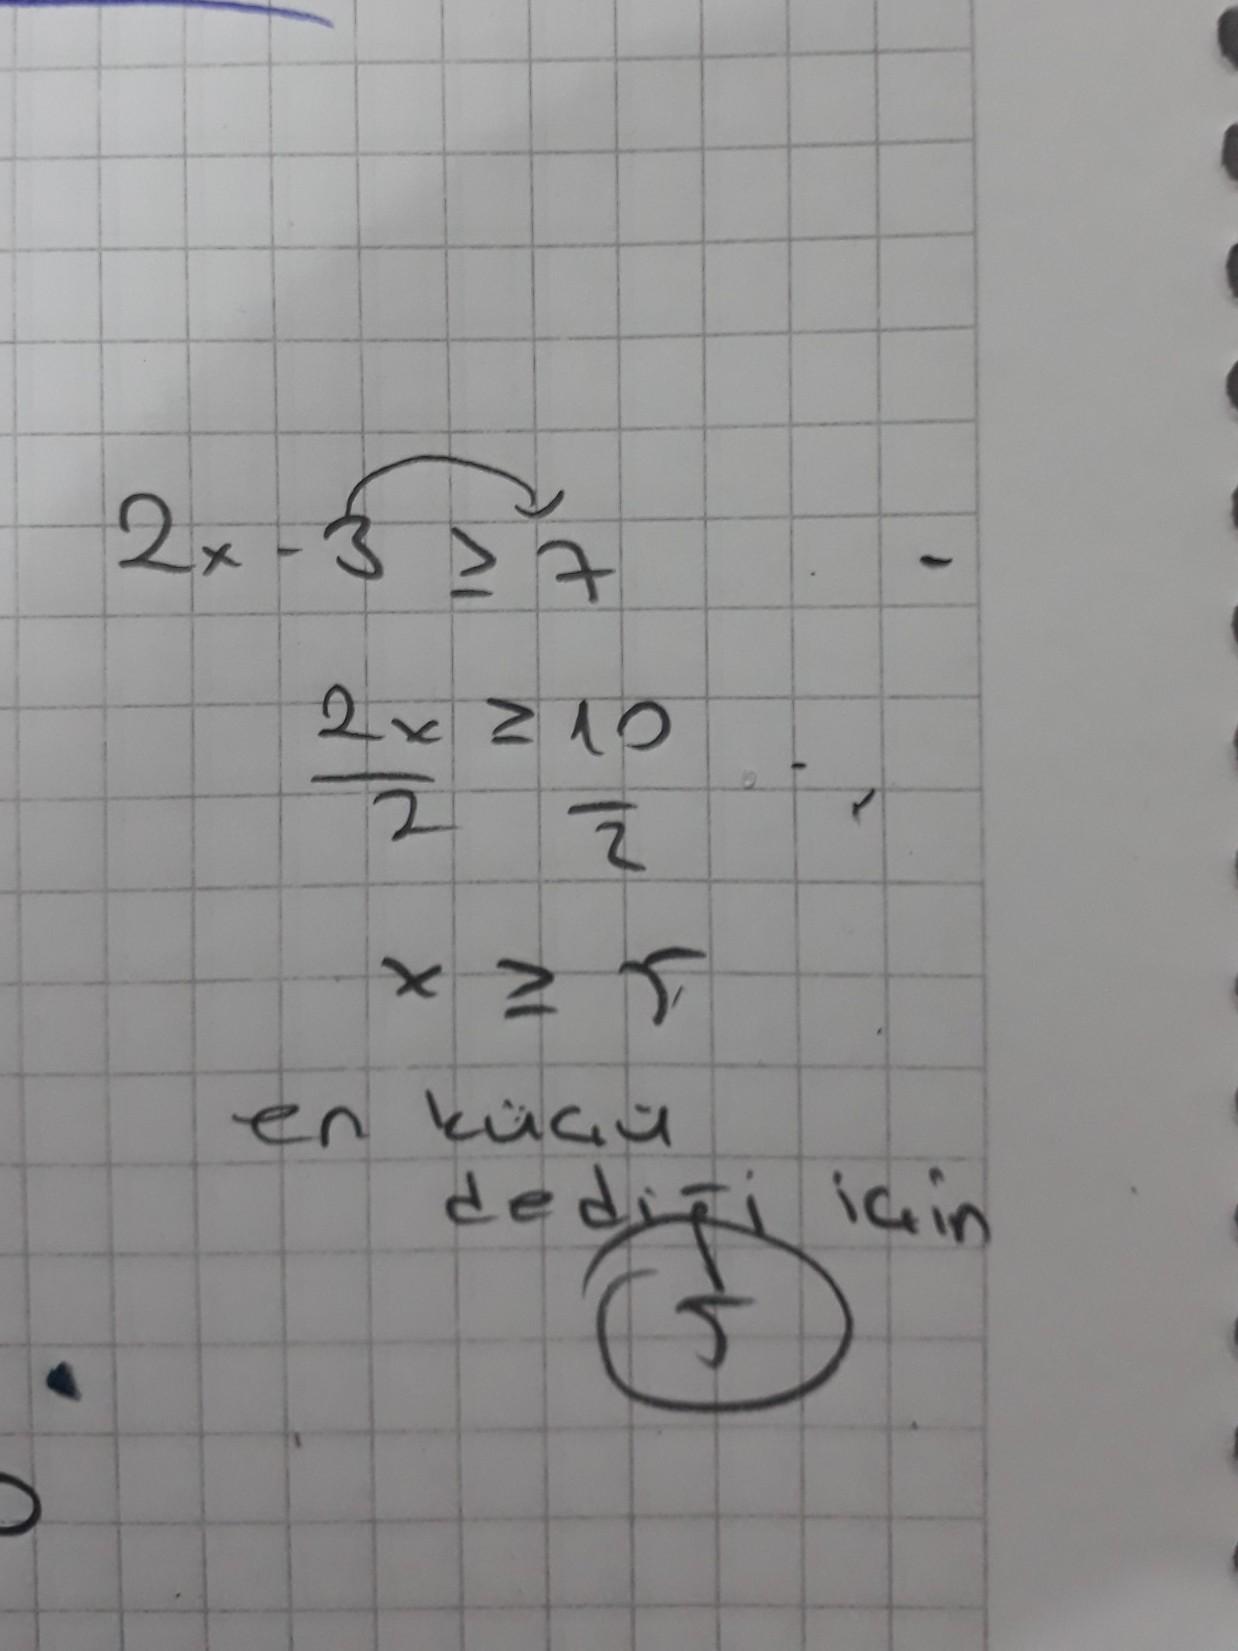 2x - 3 ≥ 7
2x ≥ 10
2 2
x ≥ 5
en küçü
dediği için
5